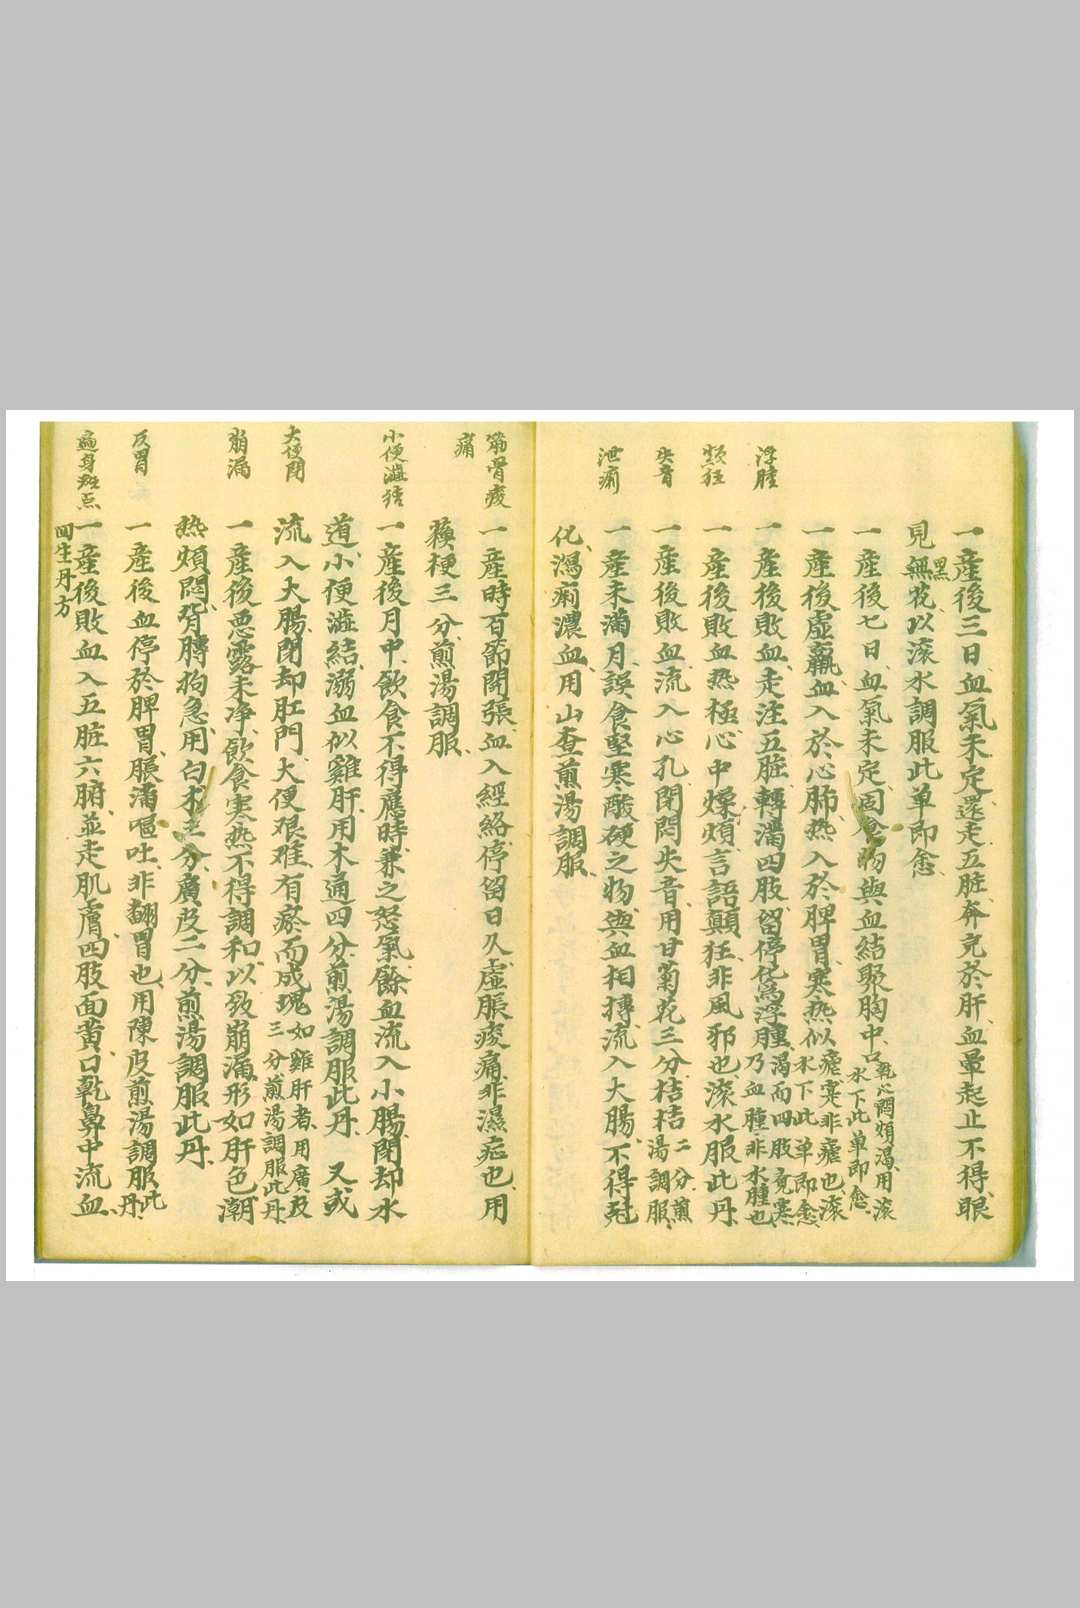 一產後三日、血氣未定、還走五脏、奔克於肝、血暈起止不得、眼
見黑花、以滚水調服此单即愈
一產後七日、血氣未定、因食物與血結聚胸中、口乾、心悶煩渴、用滚水下此单即愈
一產後虛羸、血入於心肺、热入於脾胃、寒热似瘧、寔非瘧也、滚水下此单即愈
浮腫
一產後敗血、走注五脏、轉滿四肢、留停化為浮腫、渴而四肢竟寒乃血腫、非水腫也
顛狂
一產後敗血热極、心中燥煩、言語顛狂、非風邪也、滚水服此丹、
失音
一產後敗血、流入心孔、閉悶失音、用甘菊花三分、桔梗二分煎湯調服、
泄痢
一產未滿月、誤食堅寒酸硬之物、與血相摶、流入大腸、不得尅
化、瀉痢濃血、用山查煎湯調服、
筋骨痠痛
一產時百節開張、血入經絡、停留日久、虛脹痠痛、非濕症也、用
蘓梗三分、煎湯調服、
小便澁结
一產後月中、飲食不得應時、兼之怒氣、餘血流入小腸、閉却水
道、小便澁結、溺血似雞肝、用木通四分、煎湯調服此丹、又或
大便閉
流入大腸、閉却肛門、大便艰难、有瘀而成塊、如雞肝者、用廣皮三分煎湯調服此丹、
崩漏
一產後恶露未净、飲食寒热不得調和、以致崩漏、形如肝色、潮
热煩悶、背膊拘急、用白术三分、廣皮二分、煎湯調服此丹、
反胃
一產後血停於脾胃、脹滿嘔吐、非翻胃也、用陳皮煎湯調服此丹、
遍身斑点
一產後敗血入五脏六腑、並走肌膚四肢、面黄口乾、鼻中流血、
回生丹方